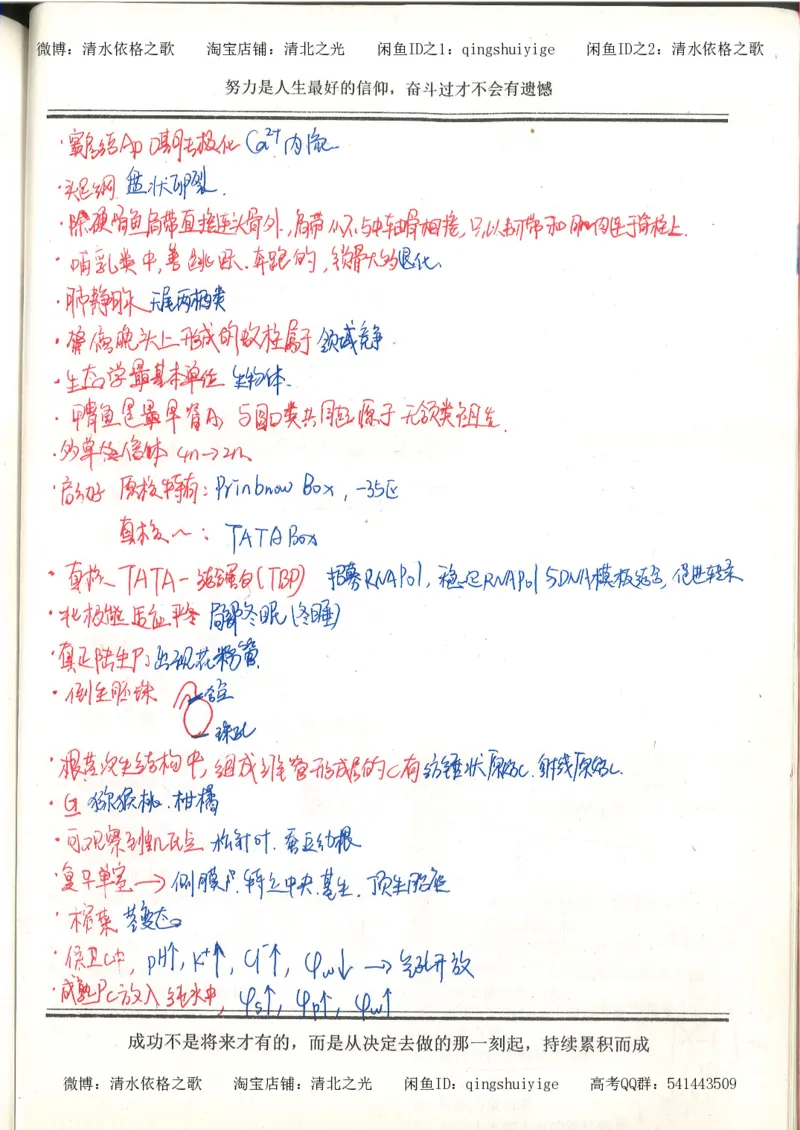 微博：清水依格之歌 淘宝店铺：清北之光 闲鱼ID之1：qingshuiyige 闲鱼ID之2：清水依格之歌
努力是人生最好的信仰，奋斗过才不会有遗憾
·窦房结Ap 0期去极化 Ca²⁺内流
·头足纲 盘状卵裂.
·除硬骨鱼肩带直接连头骨外,肩带从不与中轴骨相接,只以韧带和肌肉连于脊柱上.
·哺乳类中,善跳跃.奔跑的,锁骨大多退化.
·肺静脉 无尾两栖类
·藤壶 石头上形成的 属于 领域竞争.
·生态学最基本单位 生物体.
·甲胄鱼是最早脊A, 与圆口类共同起源于无颌类祖先.
·多单倍体 4n→2n
·启动子 原核特有：Prinbnow Box , -35区
真核~： TATA Box
·真核 TATA-结合蛋白(TBP) 招募RNAPol, 稳定RNAPol与DNA模板结合,促进转录
·北极熊 局部冬眠(冬睡)
·真正陆生P：出现花粉管
·倒生胚珠 合点
珠孔
·根茎次生结构中,组成维管形成层的C有纺锤状原始C.射线原始C.
·G 猕猴桃.柑橘
·可观察到凯氏点 松针叶.蚕豆幼根
·复子单室→侧膜.特立中央.基生.顶生胎座
·榨菜 茎变态
·保卫C中, pH↑, K⁺↑, Cl⁻↑, φw↓ → 气孔开放
·成熟Pc放入纯水中, φs↑, φp↑, φw↑
成功不是将来才有的，而是从决定去做的那一刻起，持续累积而成
微博：清水依格之歌 淘宝店铺：清北之光 闲鱼ID：qingshuiyige 高考QQ群：541443509